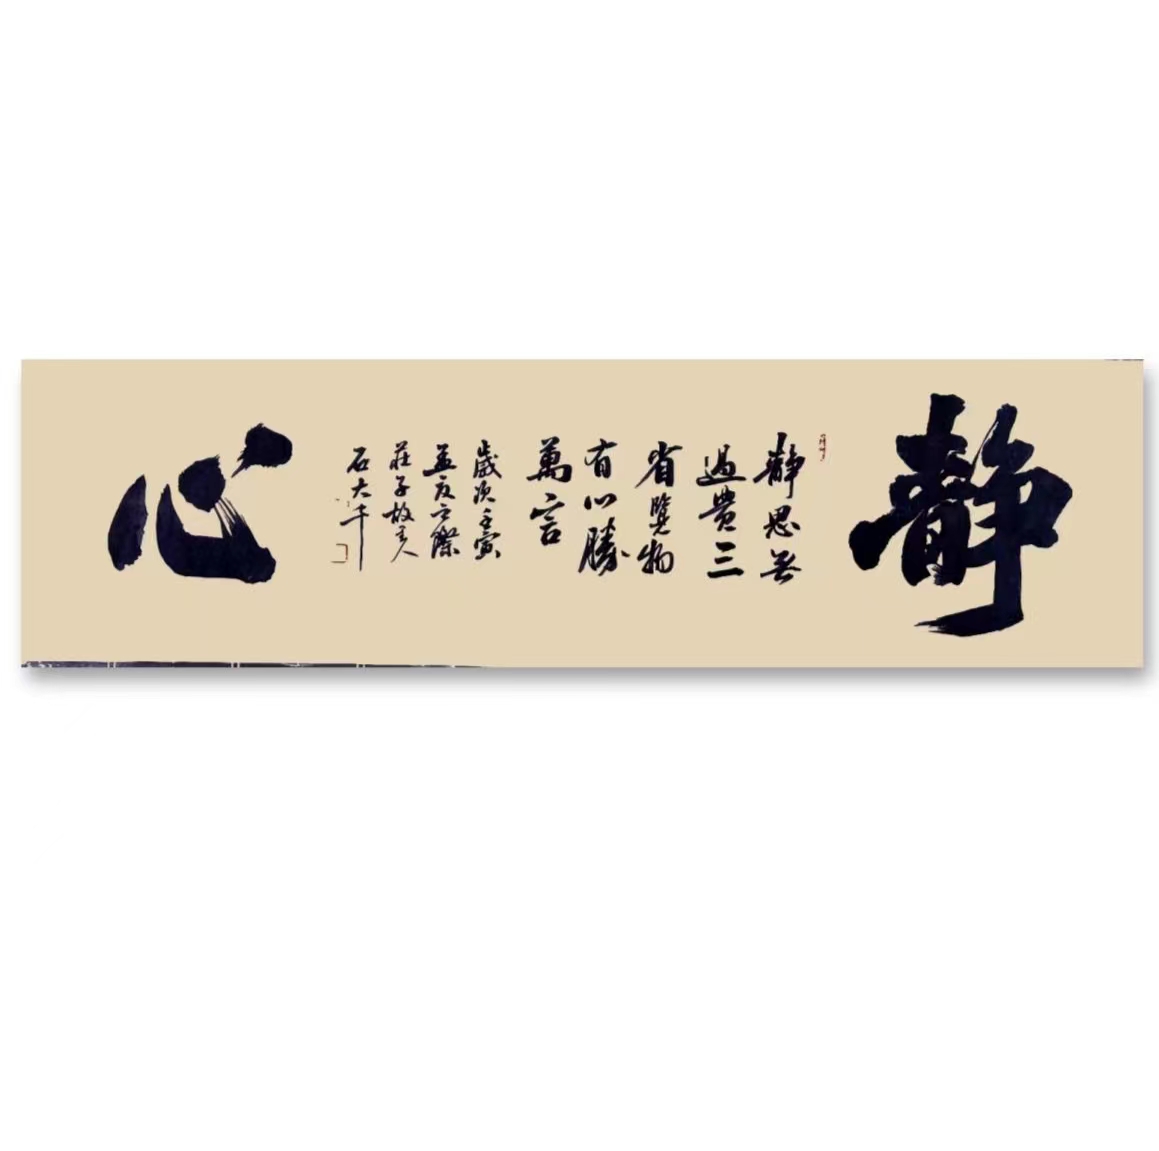 靜
靜思無
過貴三
省覽物
有心勝
萬言
歲次壬寅
孟夏之際
莊子故里人
石大千
心